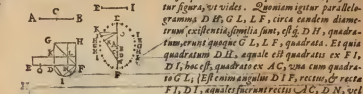 A B C
E I
tur figura, vt vides. Quoniam igitur parallelo-
gramma D H, G L, L F, circa eandem diame-
trum existentia, similia sunt, estq́; D H, quadra-
tum, erunt quoque G L, L F, quadrata. Et quia
quadratum D H, æquale est quadratis ex F I,
D I, hoc est, quadrato ex A C, vna cum quadra-
to G L; (Est enim angulus D I F, rectus, & rectæ
F I, D I, æquales fuerunt rectis A C, D N, vt